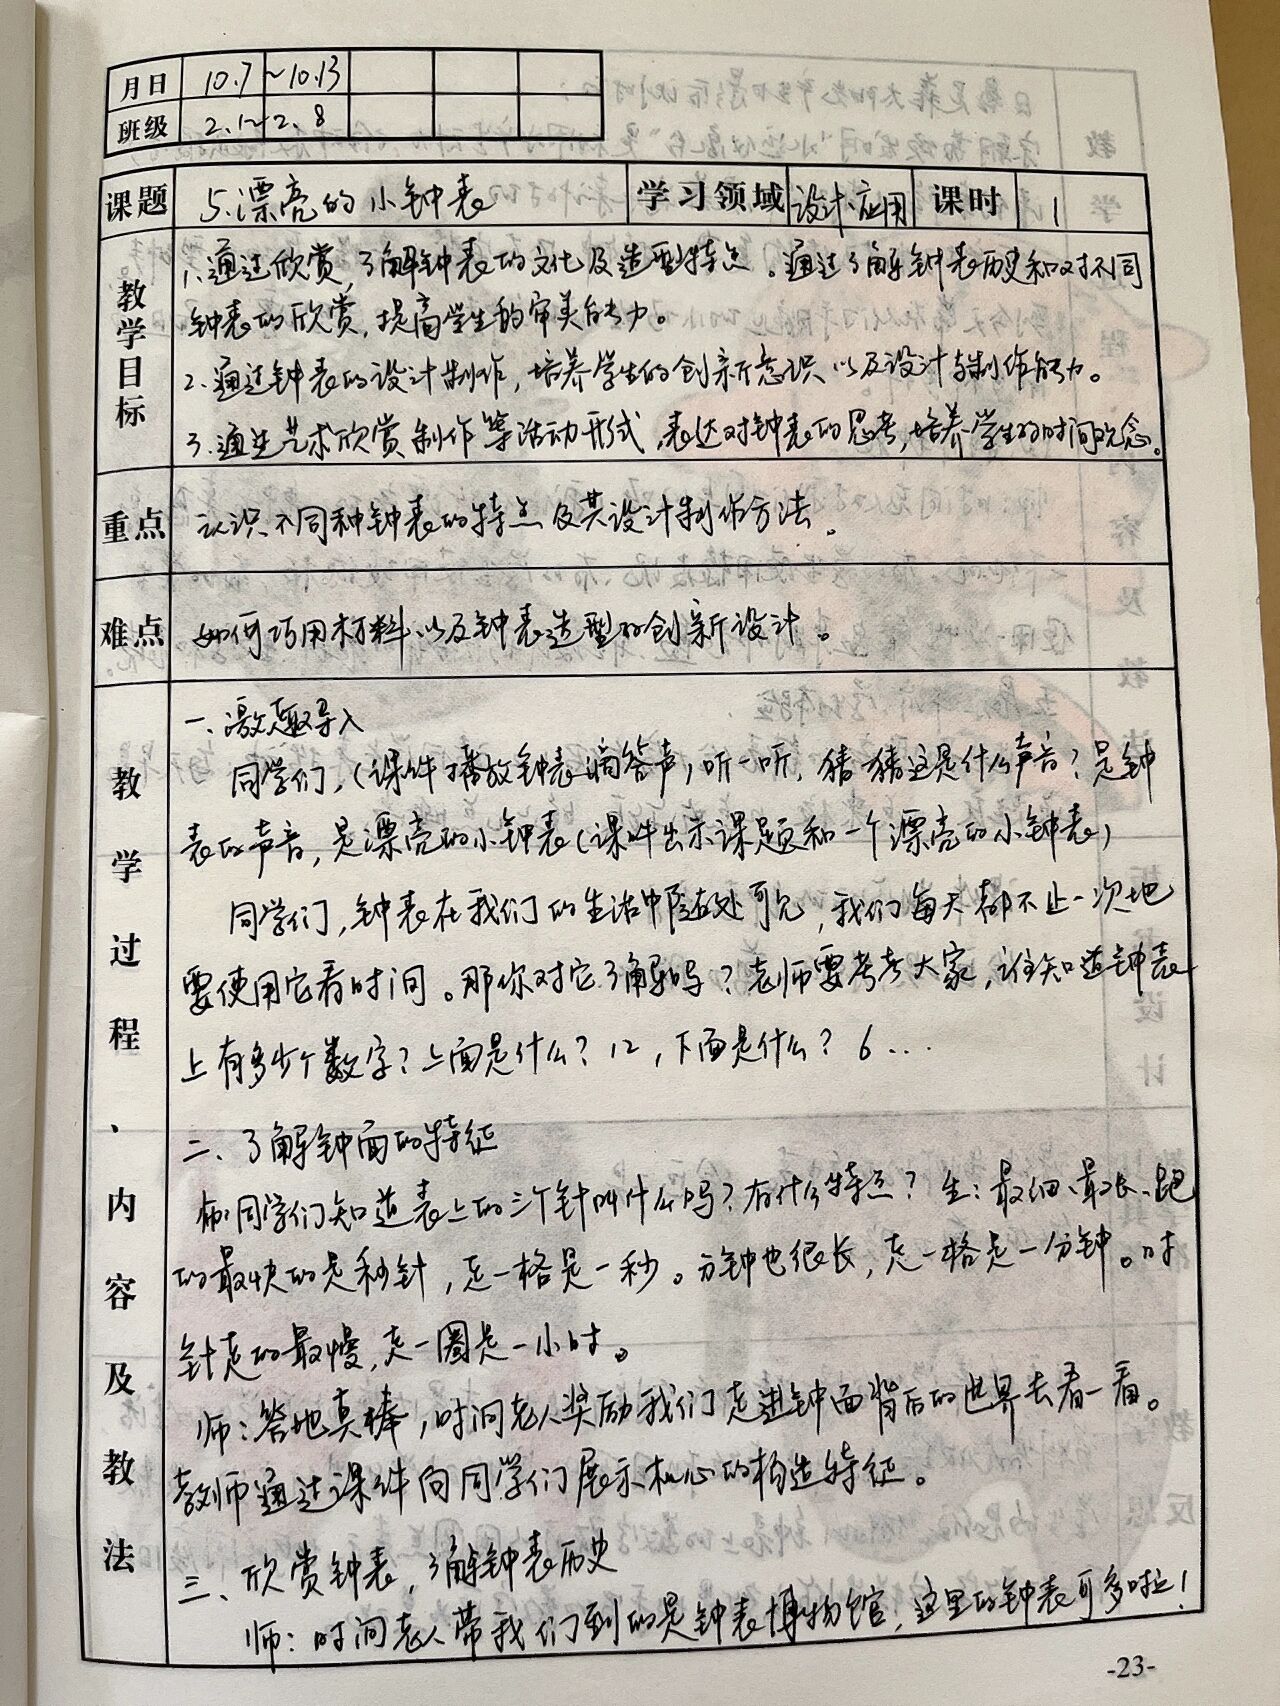 月日 10.7～10.13
班级 2.1～2.8
课题 5.漂亮的小钟表 学习领域 设计.应用 课时 1
教学目标
1.通过欣赏,了解钟表的文化及造型特点。通过了解钟表历史和对不同
钟表的欣赏,提高学生的审美能力。
2.通过钟表的设计制作,培养学生的创新意识以及设计与制作能力。
3.通过艺术欣赏制作等活动形式,表达对钟表的思考,培养学生的时间观念。
重点 认识不同种钟表的特点及其设计制作方法。
难点 如何巧用材料以及钟表造型的创新设计。
教学过程、内容及教法
一、激趣导入
同学们,(课件播放钟表滴答声)听一听,猜猜这是什么声音?是钟
表的声音,是漂亮的小钟表(课件出示课题和一个漂亮的小钟表)
同学们,钟表在我们的生活中随处可见,我们每天都不止一次地
要使用它看时间。那你对它了解吗?老师要考考大家,谁知道钟表
上有多少个数字?上面是什么?12,下面是什么?6...
二、了解钟面的特征
师:同学们知道表上的三个针叫什么吗?有什么特点?生:最细、最长、跑
的最快的是秒针,走一格是一秒。分钟也很长,走一格是一分钟。时
针走的最慢,走一圈是一小时。
师:答地真棒,时间老人奖励我们走进钟面背后的世界去看一看。
教师通过课件向同学们展示机心的构造特征。
三、欣赏钟表,了解钟表历史
师:时间老人带我们到的是钟表博物馆,这里的钟表可多啦!
-23-